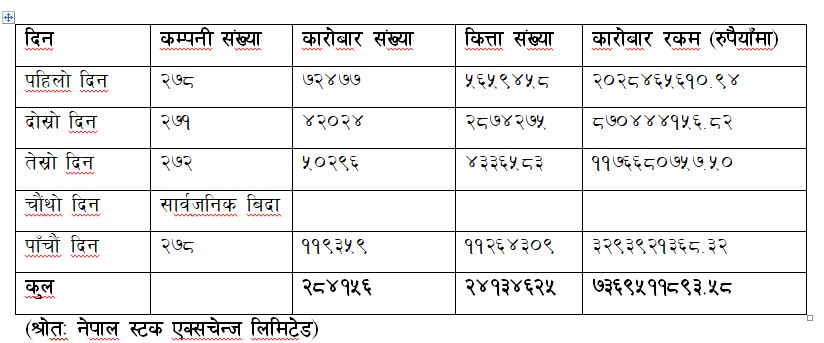 दिन कम्पनी संख्या कारोबार संख्या कित्ता संख्या कारोबार रकम (रुपैयाँमा)
पहिलो दिन २७८ ७२४७७ ५६५९४५८ २०२८४६५६१०.९४
दोस्रो दिन २७१ ४२०२४ २८७४२७५ ८७०४४४१५६.८२
तेस्रो दिन २७२ ५०२९६ ४३३६५८३ ११७६६८०७५७.५०
चौंथो दिन सार्वजनिक बिदा
पाँचौं दिन २७८ ११९३५९ ११२६४३०९ ३२९३९२१३६८.३२
कुल २८४१५६ २४१३४६२५ ७३६९५११८९३.५८
(श्रोतः नेपाल स्टक एक्सचेन्ज लिमिटेड)